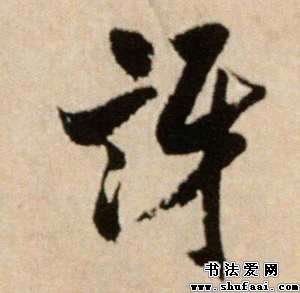 訝
书法爱网
www.shufaai.com